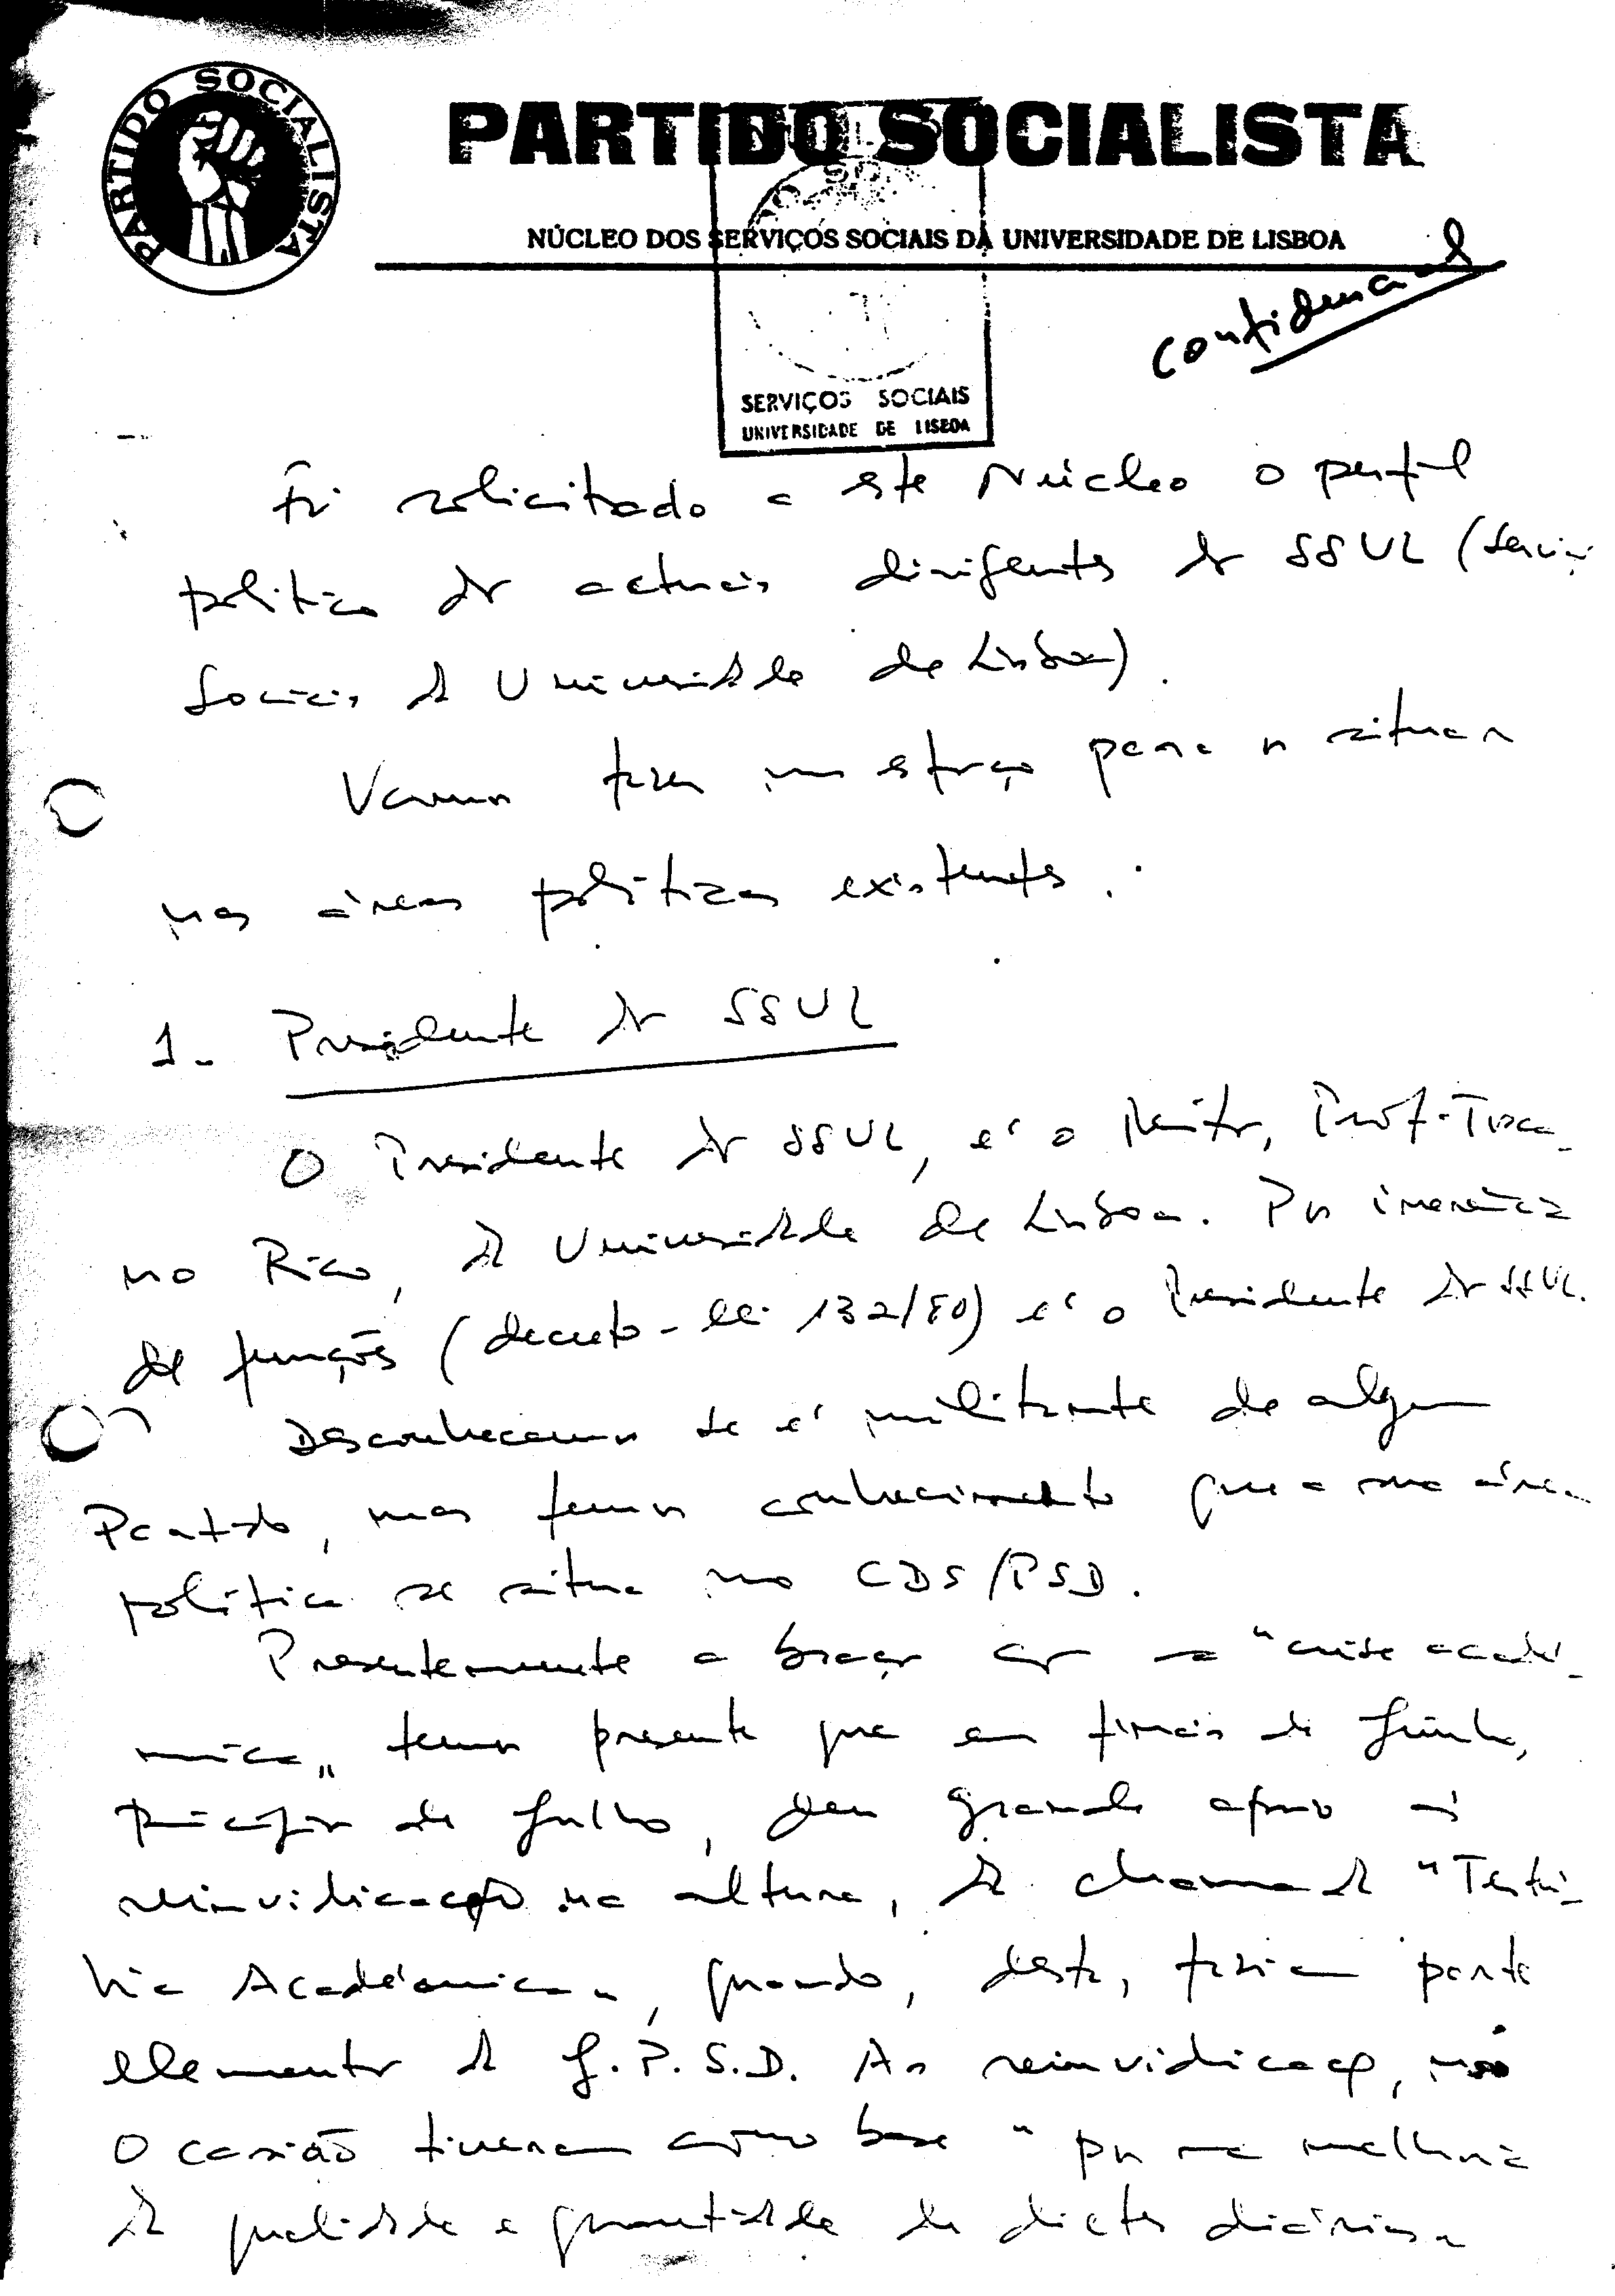 PARTIDO SOCIALISTA
PARTIDO SOCIALISTA
NÚCLEO DOS SERVIÇOS SOCIAIS DA UNIVERSIDADE DE LISBOA
Confidencial
SERVIÇOS SOCIAIS
UNIVERSIDADE DE LISBOA
Foi solicitado a este Núcleo o perfil
político dos actuais dirigentes dos SSUL (Serviços
Sociais da Universidade de Lisboa).
Vamos fazer um esforço para os situar
nas áreas políticas existentes.
1- Presidente dos SSUL
O Presidente dos SSUL, é o Reitor, Prof. Tira-
no Rico, da Universidade de Lisboa. Por inerência
de funções (decreto-lei 132/80) é o Presidente dos SSUL.
Desconhecemos se é militante de algum
Partido, mas temos conhecimento que a sua área
política se situa no CDS/PSD.
Presentemente a braços com a "crise acadé-
mica" temos presente que em finais de Junho,
princípios de Julho, deu grande apoio às
reinvidicações na altura, da chamada "Tertú-
lia Académica", quando, desta, faziam parte
elementos da J.P.S.D. As reinvidicações, na
ocasião tiveram como base "por uma melhoria
da qualidade e quantidade de dietas diárias"